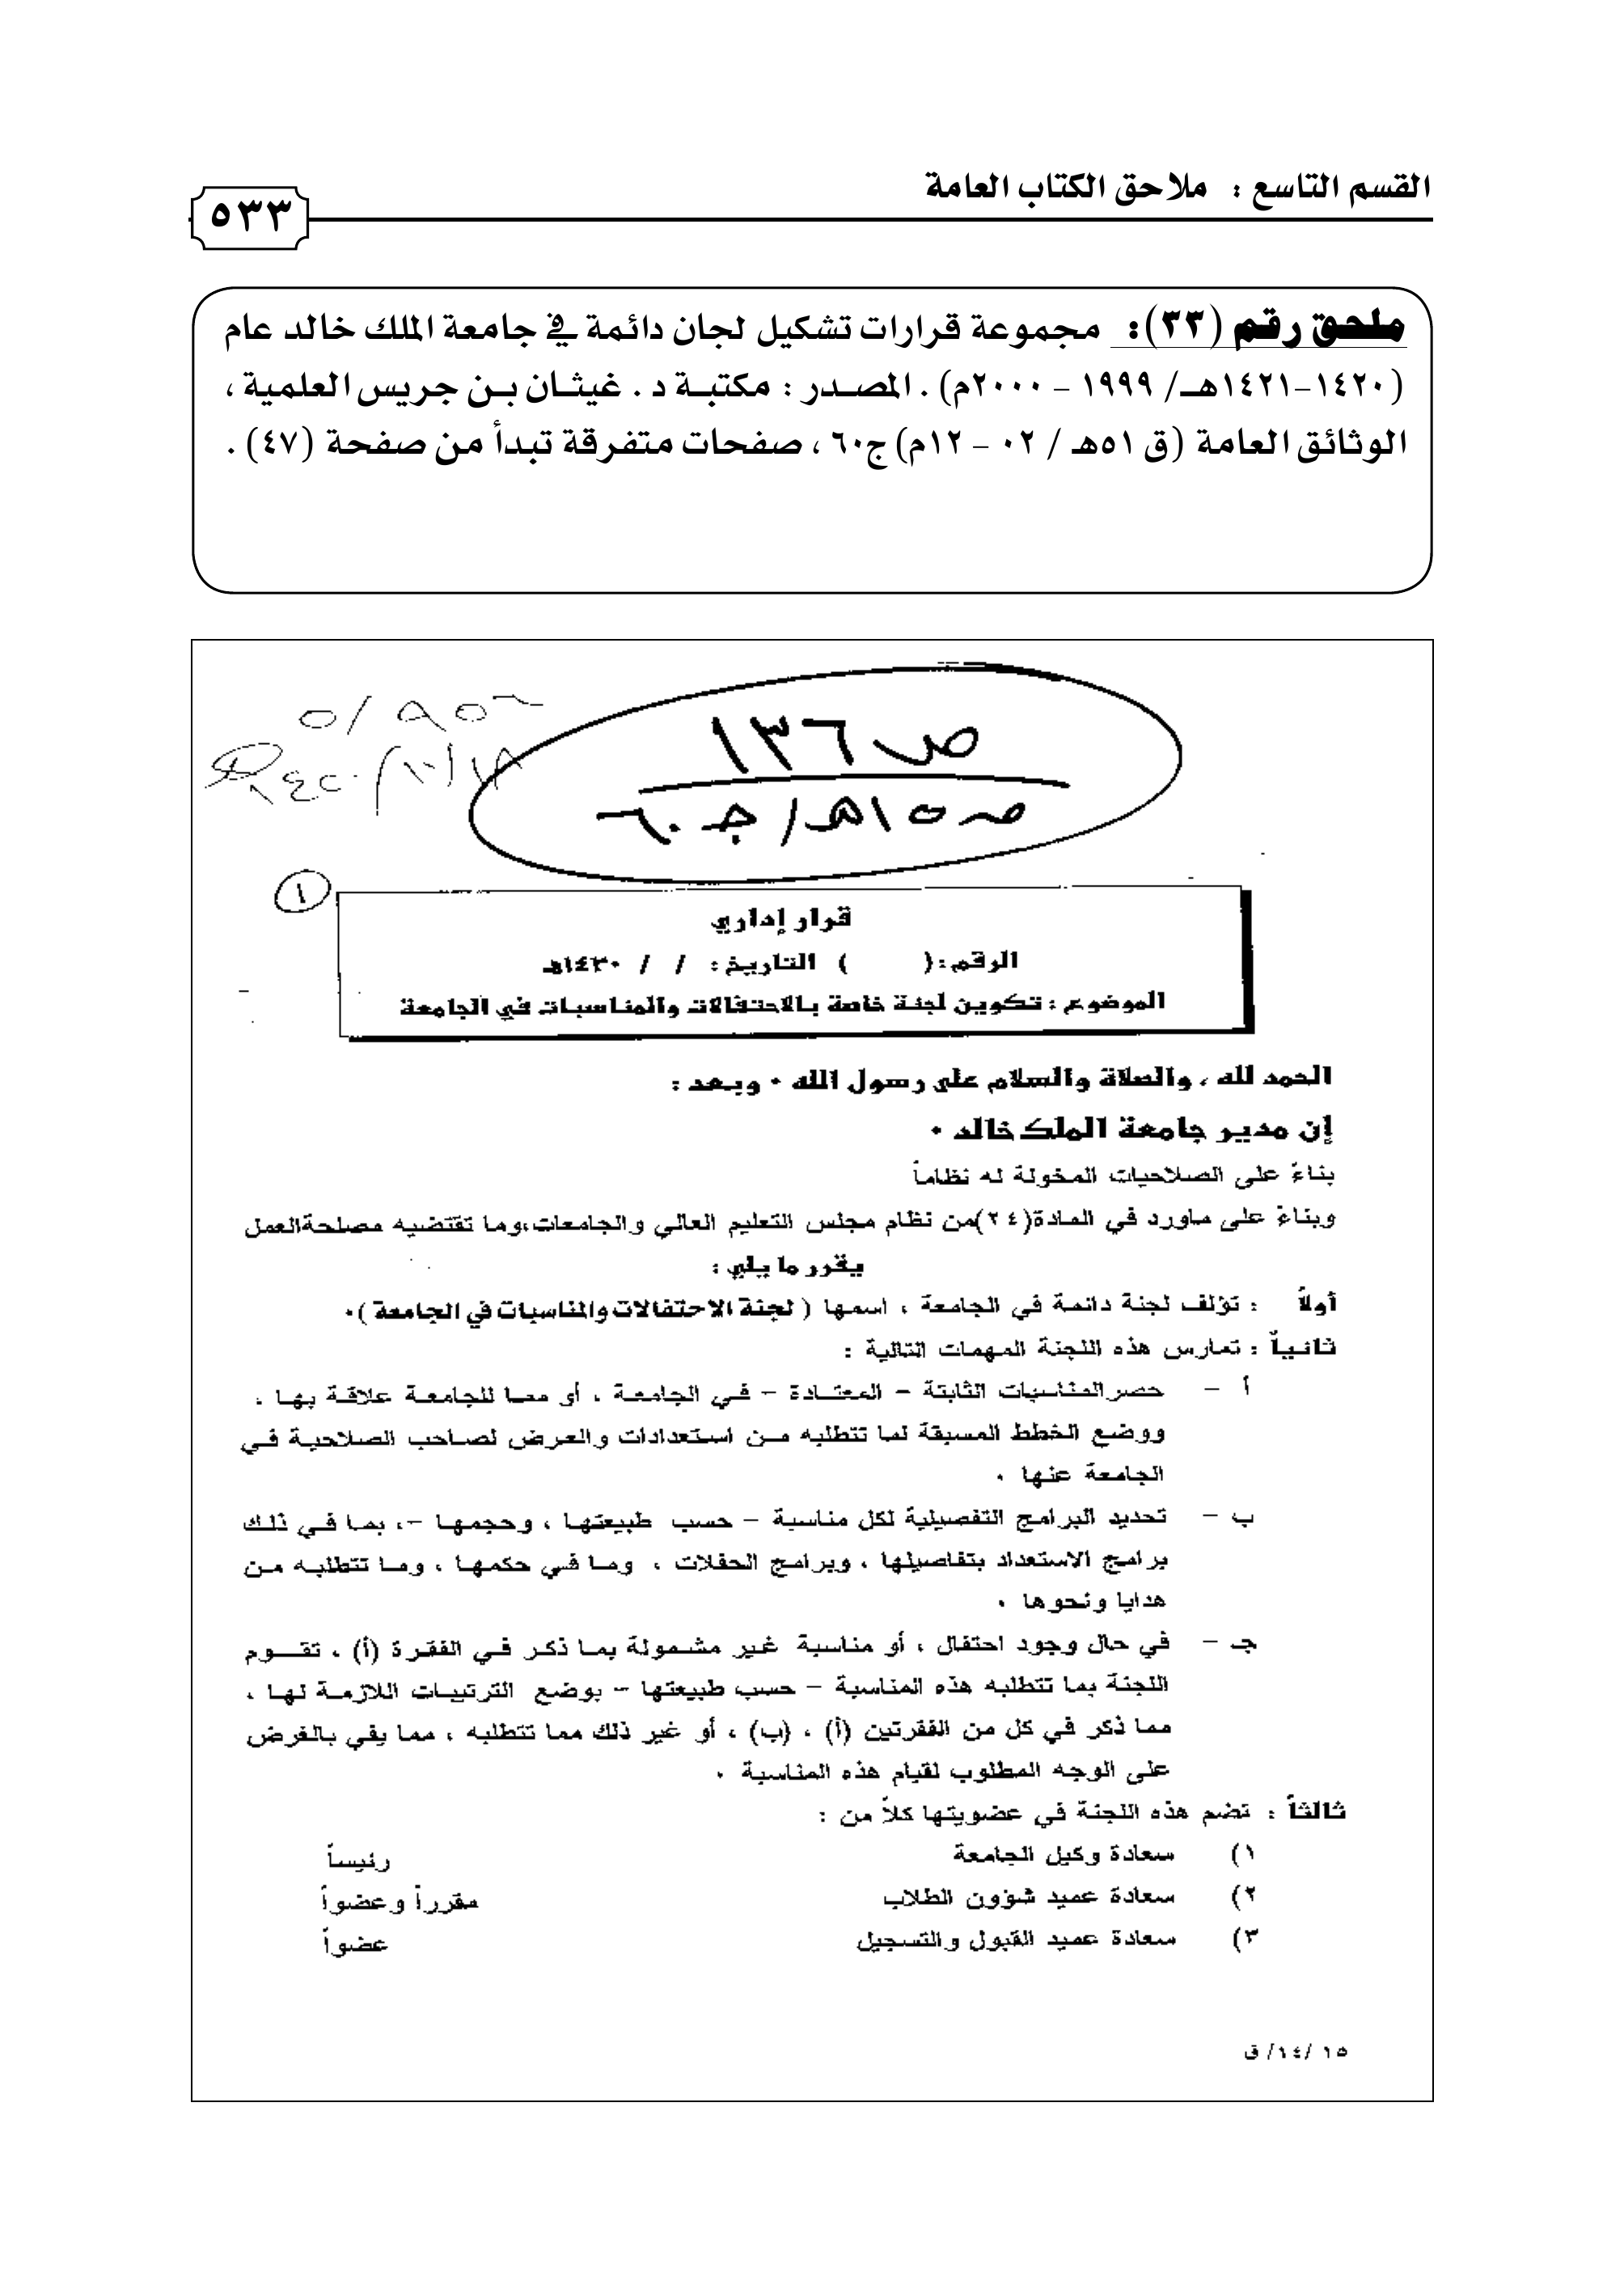 القسم التاسع : ملاحق الكتاب العامة
٥٣٣
ملحق رقم (٣٣): مجموعة قرارات تشكيل لجان دائمة في جامعة الملك خالد عام
(١٤٢٠-١٤٢١هـ/ ١٩٩٩ - ٢٠٠٠م) . المصدر : مكتبة د . غيثان بن جريس العلمية ،
الوثائق العامة (ق ٥١هـ / ٠٢ - ١٢م) ج٦٠ ، صفحات متفرقة تبدأ من صفحة (٤٧) .
ص ١٣٦
١
قرار إداري
الرقم : ( ) التاريخ : / / ١٤٣٠هـ
الموضوع : تكوين لجنة خاصة بالاحتفالات والمناسبات في الجامعة
الحمد لله ، والصلاة والسلام على رسول الله ٠ وبعد :
إن مدير جامعة الملك خالد ٠
بناءً على الصلاحيات المخولة له نظاماً
وبناءً على ماورد في المادة(٢٤)من نظام مجلس التعليم العالي والجامعات،وما تقتضيه مصلحةالعمل
يقرر ما يلي :
أولاً : تؤلف لجنة دائمة في الجامعة ، اسمها ( لجنة الاحتفالات والمناسبات في الجامعة )٠
ثانياً : تمارس هذه اللجنة المهمات التالية :
أ - حصر المناسبات الثابتة - المعتادة - في الجامعة ، أو مما للجامعة علاقة بها ،
ووضع الخطط المسبقة لما تتطلبه من استعدادات والعرض لصاحب الصلاحية في
الجامعة عنها ٠
ب - تحديد البرامج التفصيلية لكل مناسبة - حسب طبيعتها ، وحجمها -، بما في ذلك
برامج الاستعداد بتفاصيلها ، وبرامج الحفلات ، وما في حكمها ، وما تتطلبه من
هدايا ونحوها ٠
جـ - في حال وجود احتفال ، أو مناسبة غير مشمولة بما ذكر في الفقرة (أ) ، تقوم
اللجنة بما تتطلبه هذه المناسبة - حسب طبيعتها - بوضع الترتيبات اللازمة لها ،
مما ذكر في كل من الفقرتين (أ) ، (ب) ، أو غير ذلك مما تتطلبه ، مما يفي بالغرض
على الوجه المطلوب لقيام هذه المناسبة ٠
ثالثاً : تضم هذه اللجنة في عضويتها كلاً من :
١) سعادة وكيل الجامعة رئيساً
٢) سعادة عميد شؤون الطلاب مقرراً وعضواً
٣) سعادة عميد القبول والتسجيل عضواً
١٥ /١٤/ ق